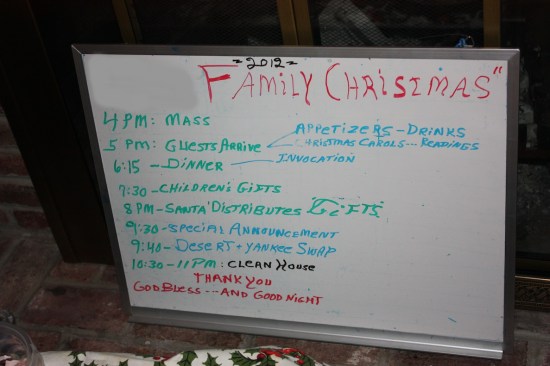 ~2012~
FAMILY CHRISTMAS"
4 PM: MASS
5 PM: GUESTS ARRIVE APPETIZERS - DRINKS
CHRISTMAS CAROLS... READINGS
6:15 - DINNER - INVOCATION
7:30 - CHILDREN'S GIFTS
8 PM - SANTA DISTRIBUTES GIFTS
9:30 - SPECIAL ANNOUNCEMENT
9:40 - DESERT + YANKEE SWAP
10:30 - 11 PM: CLEAN HOUSE
THANK YOU
GOD BLESS --- AND GOOD NIGHT